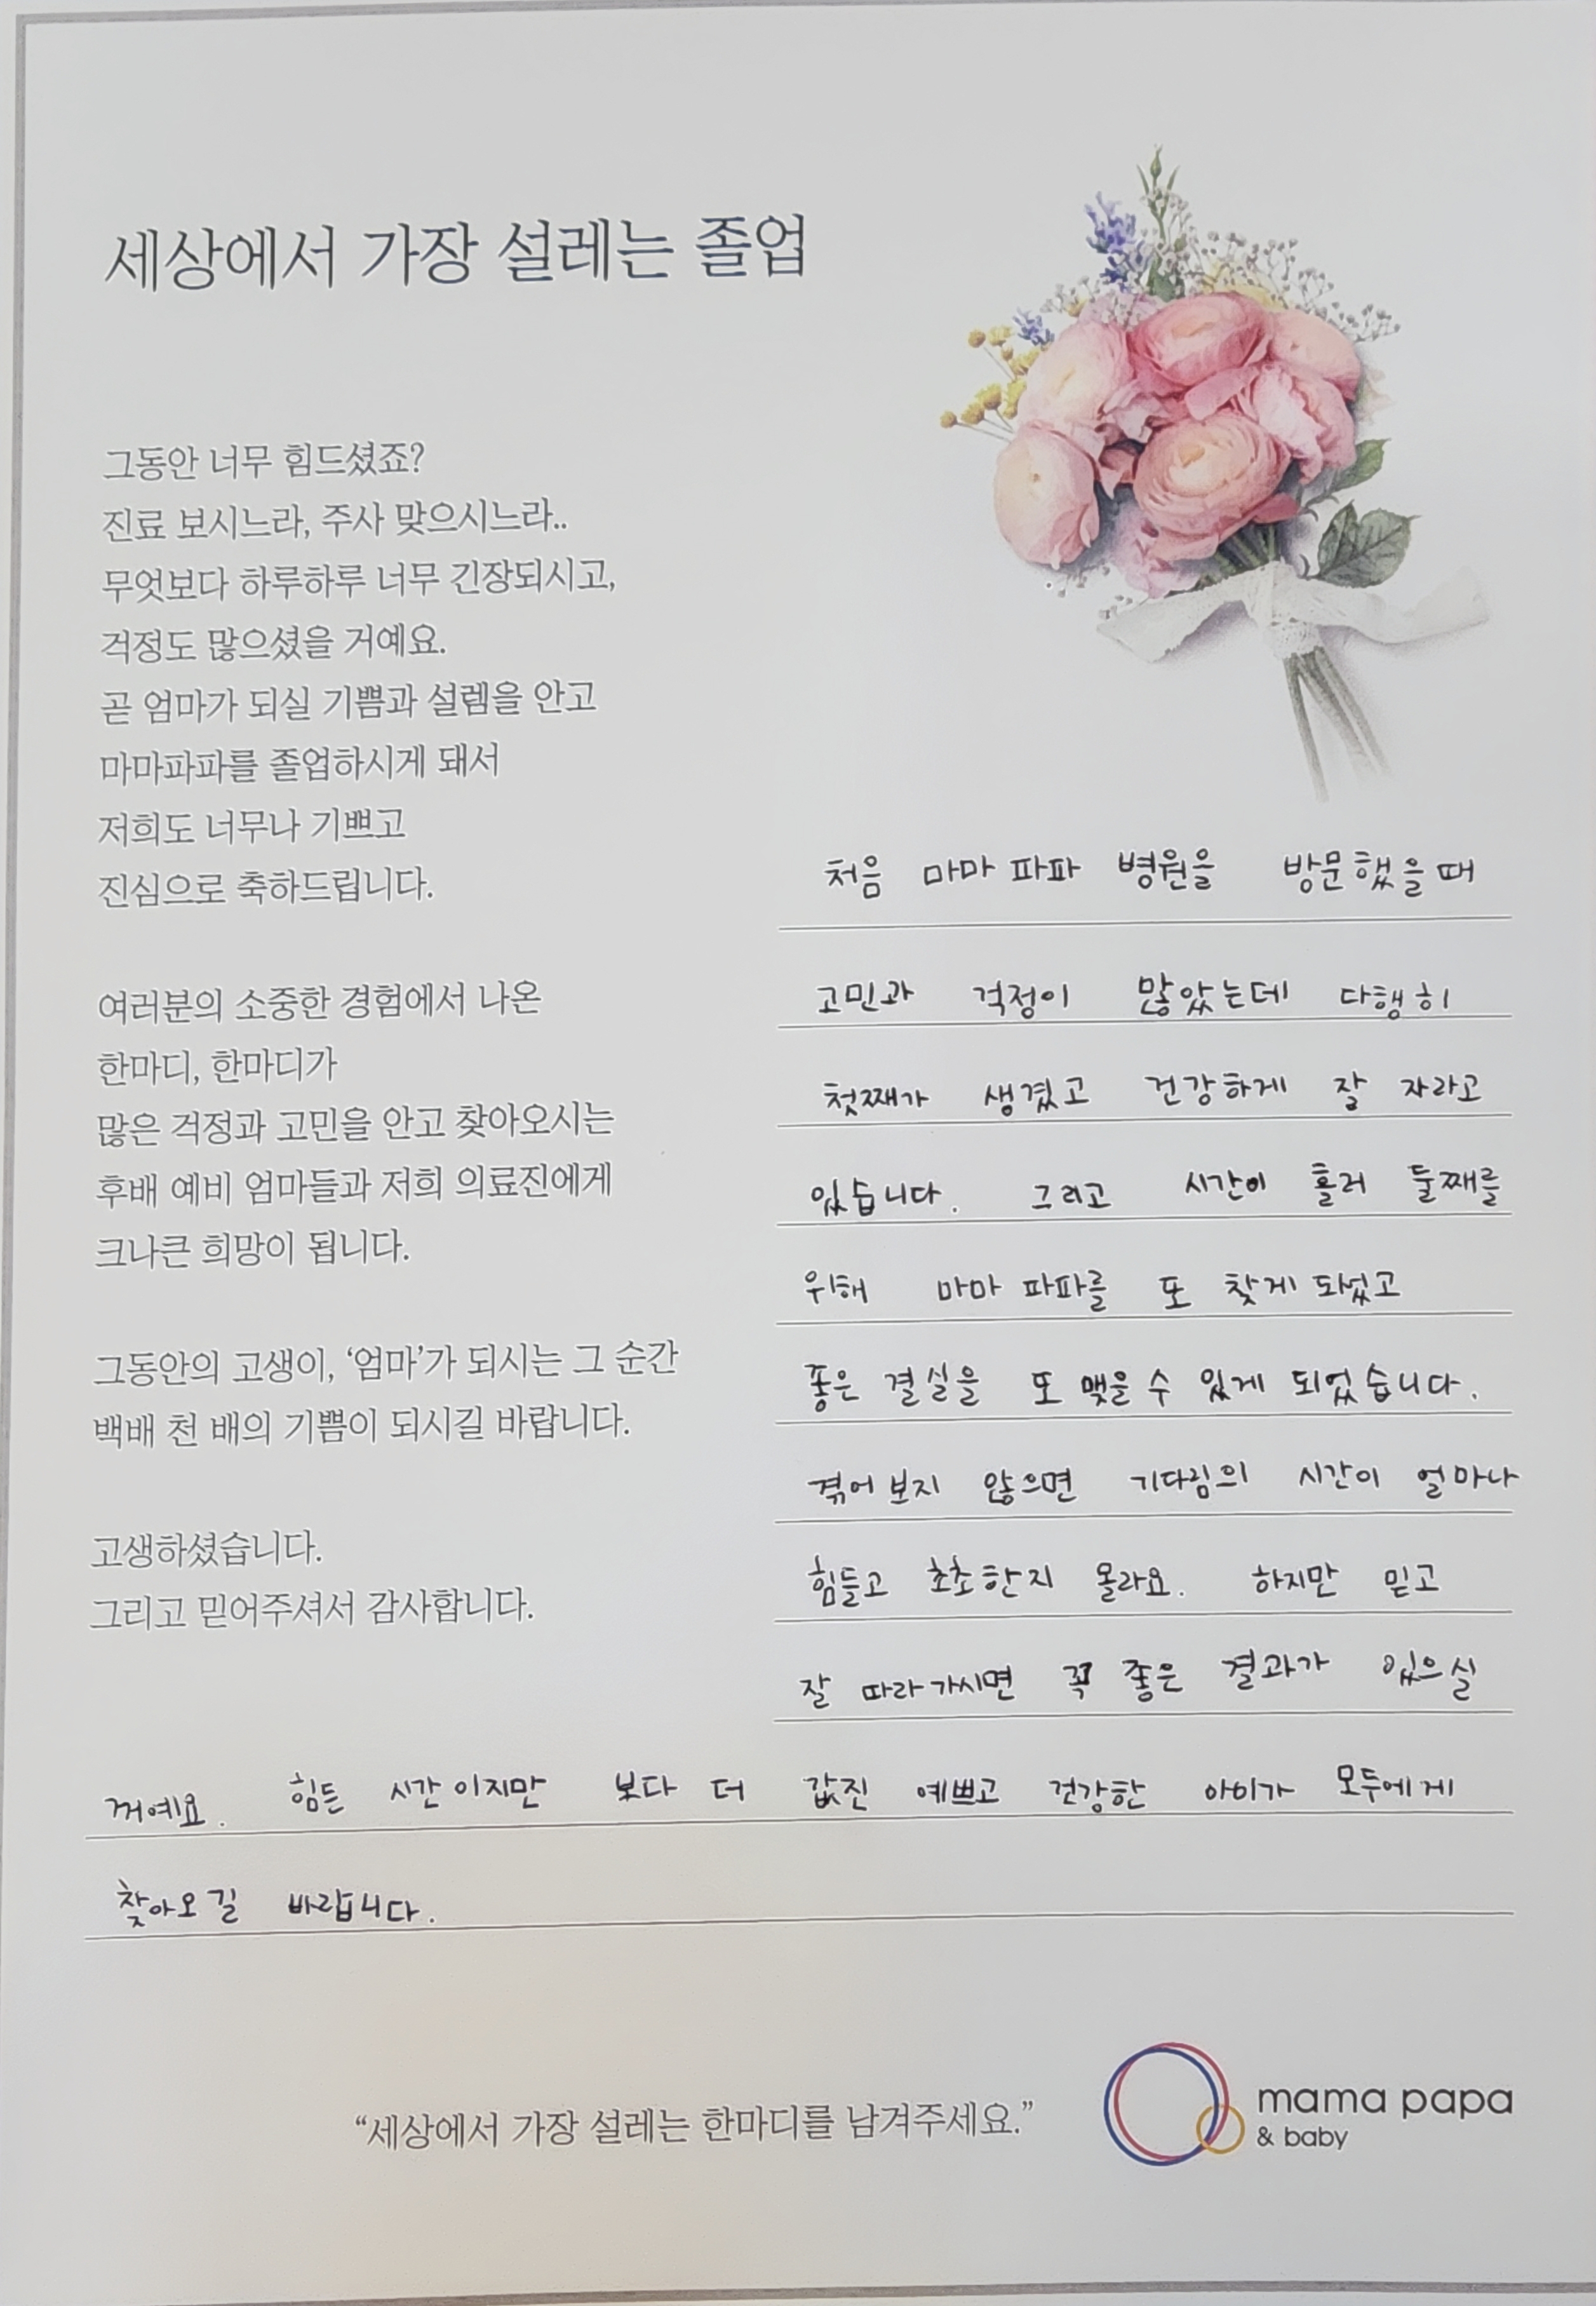 세상에서 가장 설레는 졸업
그동안 너무 힘드셨죠?
진료 보시느라, 주사 맞으시느라..
무엇보다 하루하루 너무 긴장되시고,
걱정도 많으셨을 거예요.
곧 엄마가 되실 기쁨과 설렘을 안고
마마파파를 졸업하시게 돼서
저희도 너무나 기쁘고
진심으로 축하드립니다.
여러분의 소중한 경험에서 나온
한마디, 한마디가
많은 걱정과 고민을 안고 찾아오시는
후배 예비 엄마들과 저희 의료진에게
크나큰 희망이 됩니다.
그동안의 고생이, ‘엄마’가 되시는 그 순간
백배 천 배의 기쁨이 되시길 바랍니다.
고생하셨습니다.
그리고 믿어주셔서 감사합니다.
처음 마마 파파 병원을 방문했을때
고민과 걱정이 많았는데 다행히
첫째가 생겼고 건강하게 잘 자라고
있습니다. 그리고 시간이 흘러 둘째를
위해 마마 파파를 또 찾게 되었고
좋은 결실을 또 맺을 수 있게 되었습니다.
겪어보지 않으면 기다림의 시간이 얼마나
힘들고 초초한지 몰라요. 하지만 믿고
잘 따라가시면 꼭 좋은 결과가 있으실
꺼예요. 힘든 시간이지만 보다 더 값진 예쁘고 건강한 아이가 모두에게
찾아오길 바랍니다.
“세상에서 가장 설레는 한마디를 남겨주세요.”
mama papa
& baby